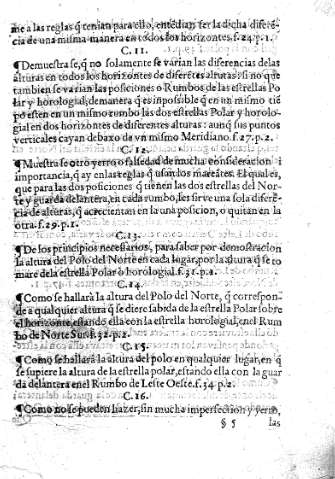 me a las reglas q̃ tenian para ello, entẽdian ser la dicha diferẽ-
cia de una misma manera en todos los horizontes. f. 24. p. 1.
C. 11.
¶ Demuestra se, q̃ no solamente se varian las diferencias de las
alturas en todos los horizontes de diferẽtes alturas: si no que
tambien se varian las posiciones o Rumbos de las estrellas Po
lar y horologial; de manera q̃ es inposible q̃ en un mismo tiẽ
po esten en un mismo rumbo las dos estrellas Polar y horolo-
gial en dos horizontes de diferentes alturas: aunq̃ sus puntos
verticales cayan debaxo de vn mismo Meridiano. f. 27. p. 2.
C. 12.
¶ Muestra se otro yerro o falsedad de mucha consideracion i
importancia, q̃ ay en las reglas q̃ usan los mareãtes. El qual es,
que para las dos posiciones q̃ tienen las dos estrellas del Nor-
te y guarda delantera, en cada rumbo, les sirve una sola diferẽ-
cia de alturas, q̃ acrecientan en la una posicion, o quitan en la
otra. f. 29. p. 1.
C. 13.
¶ De los principios necessarios, para saber por demostracion
la altura del Polo del Norte en cada lugar, por la altura q̃ se to
mare de la estrella Polar o horologial. f. 31. p. 1.
C. 14.
¶ Como se hallarà la altura del Polo del Norte, q̃ correspon-
de a qualquier altura q̃ se diere sabida de la estrella Polar sobre
el horizonte, estando ella con la estrella horologial, en el Rum
bo de Norte Sur. f. 32. p. 2.
C. 15.
¶ Como se hallarà la altura del polo en qualquier lugar, en q̃
se supiere la altura de la estrella polar, estando ella con la guar
da delantera en el Rumbo de Leste Oeste. f. 34. p. 2.
C. 16.
¶ Como no se pueden hazer, sin mucha imperfection y yerro,
§ 5 las